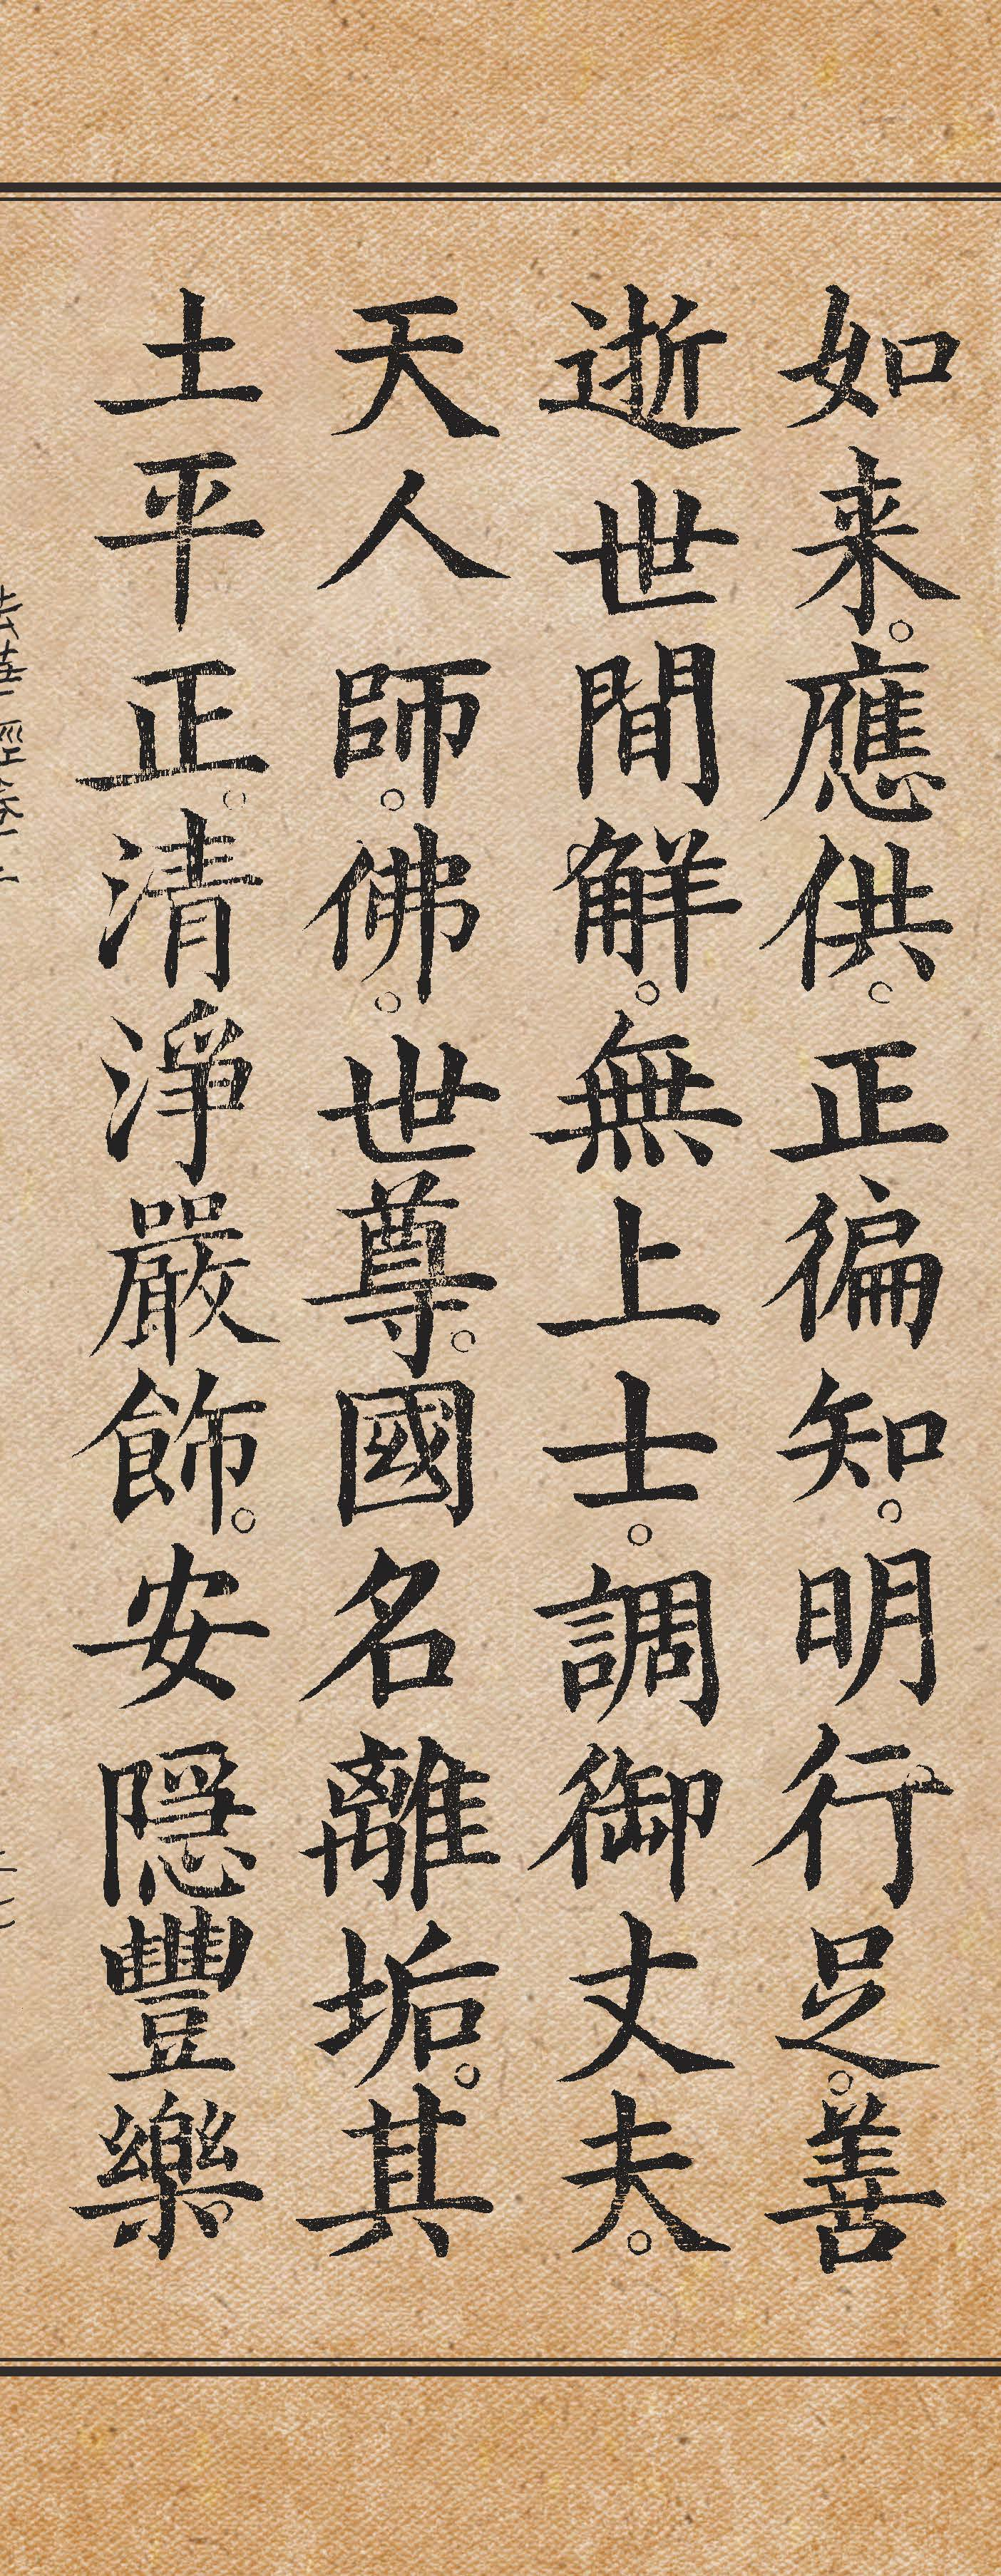 如来。應供。正徧知。明行足。善
逝世間解。無上士。調御丈夫。
天人師。佛。世尊。國名離垢。其
土平正。清淨嚴飾。安隱豐樂